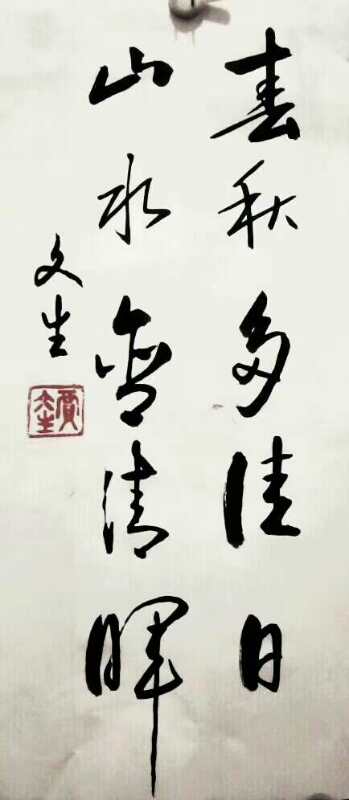 春秋多佳日
山水含清晖
文生